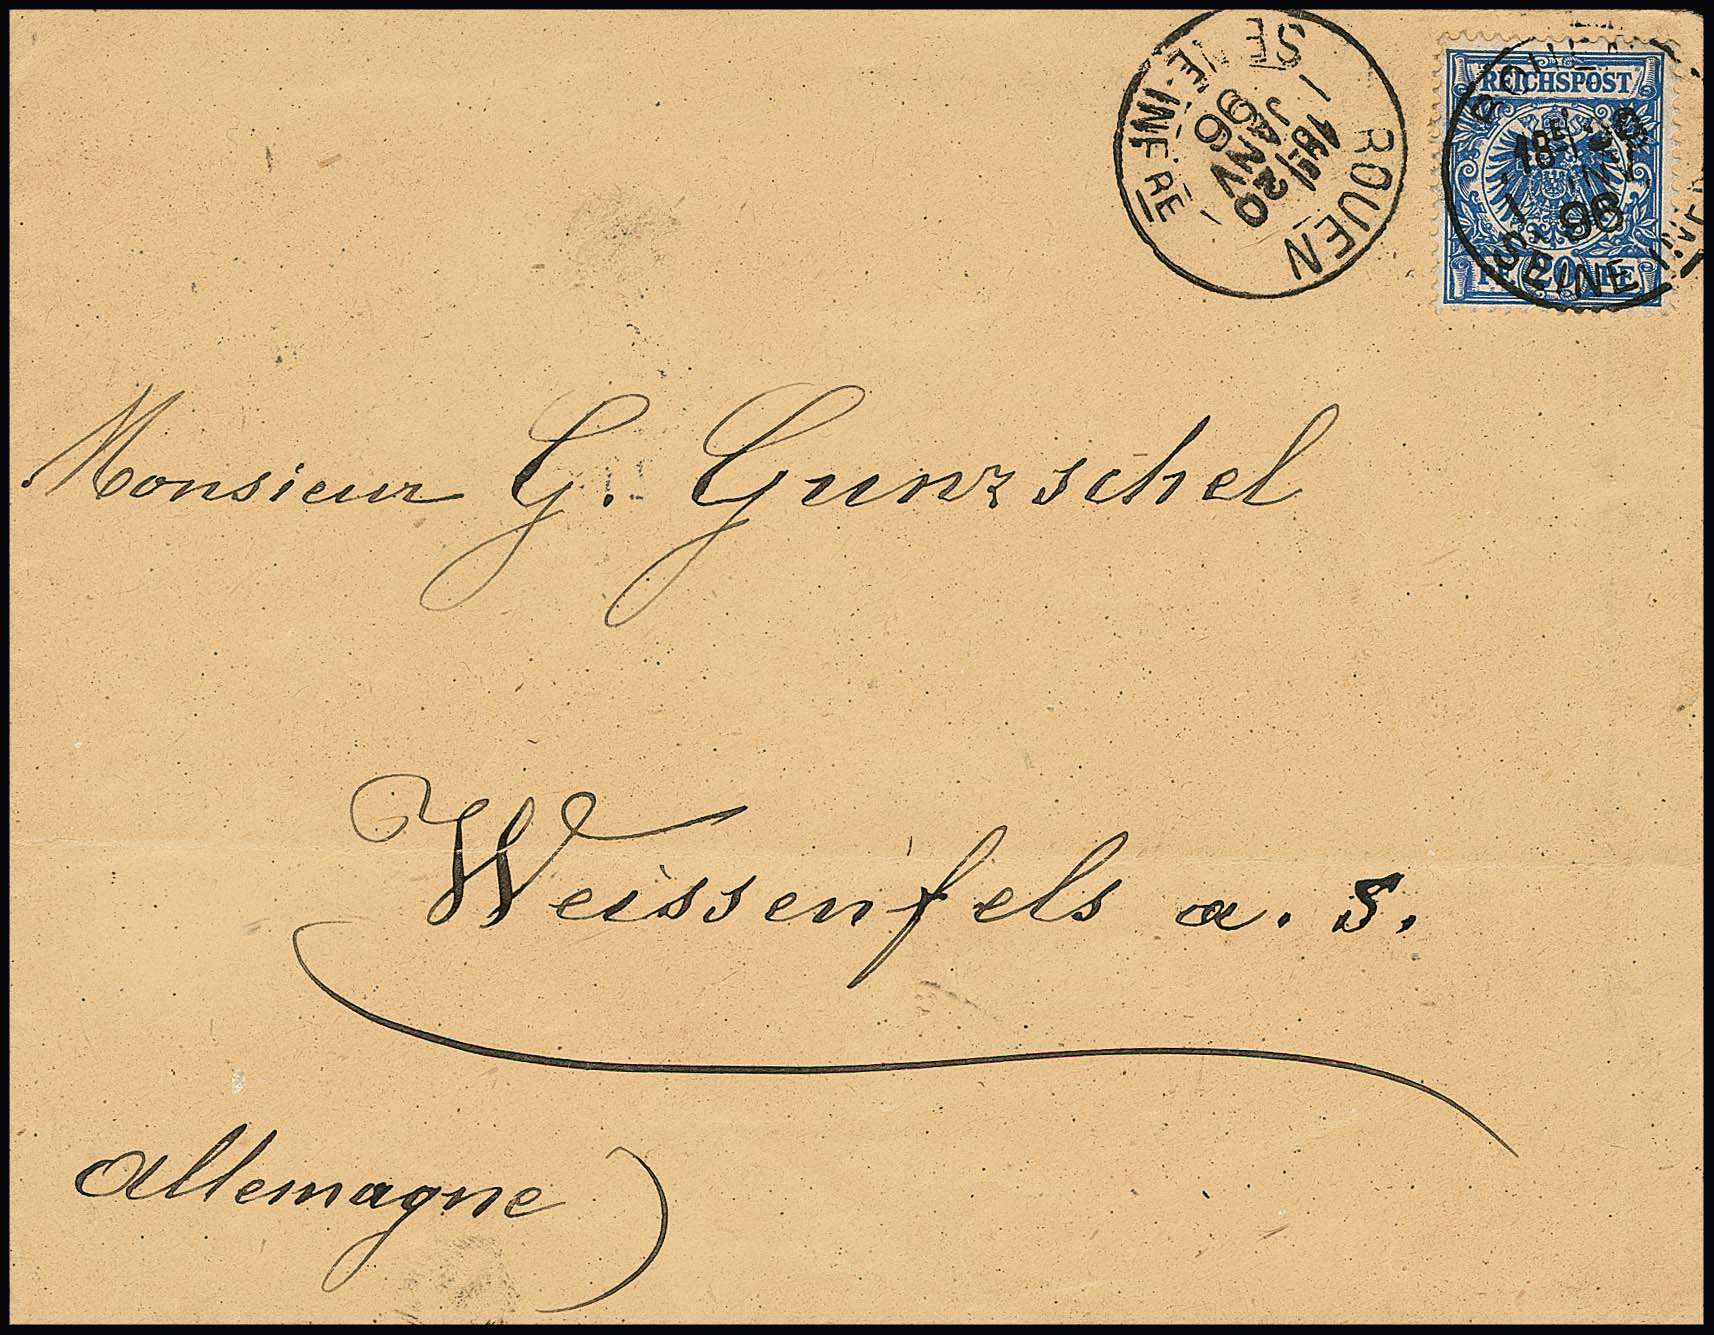 ROUEN
18E
20
JANV
96
SEINE-INFRE
REICHSPOST
18E
96
SEINE
PF. 20 PF
Monsieur G. Gunzschel
Weissenfels a. S.
Allemagne